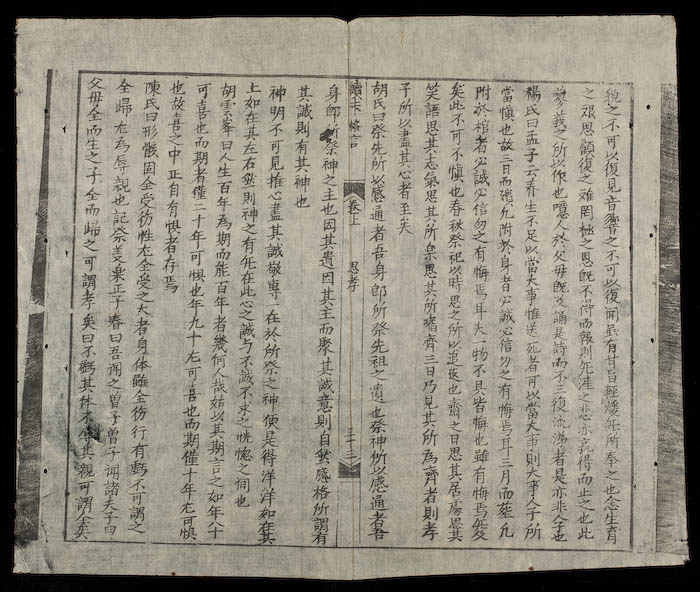 貌之不可以復見音響之不可以復聞雖有甘旨輕煖無所奉之也念生育
之艱思顧復之難罔極之恩既不得而報則無涯之悲亦孰得而止之也此
蓼莪之所以作也噫人於父母既沒誦是詩而不三復流涕者是亦非人子也
楊氏曰孟子云养生不足以當大事惟送死者可以當大事則大事人子所
當慎也故三日而殯凡附於身者必誠必信勿之有悔焉耳三月而葬凡
附於棺者必誠必信勿之有悔焉耳夫一物不具皆悔也雖有悔焉無及
矣此不可不慎也春秋祭祀以時思之所以追遠也齋之日思其居處思其
笑語思其志氣思其所樂思其所嗜齊三日乃見其所為齊者則孝
子所以盡其心者至矣
胡氏曰祭先所以感通者吾身卽所祭先祖之遺也祭神所以感通者吾
讀夫格言 卷上 思孝 三十三
身卽所祭神之主也因其遺因其主而聚其誠意則自然感格所謂有
其誠則有其神也
神明不可見推心盡其誠敬專一在於所祭之神便是得洋洋如在其
上如在其左右然則神之有無在此心之誠与不誠不求之恍惚之间也
胡雲峯曰人生百年為期而能百年者幾何人哉姑以其期言之如年八十
可喜也而期者僅二十年可惧也年九十尤可喜也而期僅十年尤可惧
也故喜之中正自有惧者存焉
陳氏曰形骸固全受彷性尤全受之大者身体雖全彷行有虧不可謂之
全歸尤為辱親也記祭义樂正子春曰吾闻之曾子曾子誦諸夫子曰
父母全而生之子全而歸之可謂孝矣曰不虧其体不辱其親可謂全矣